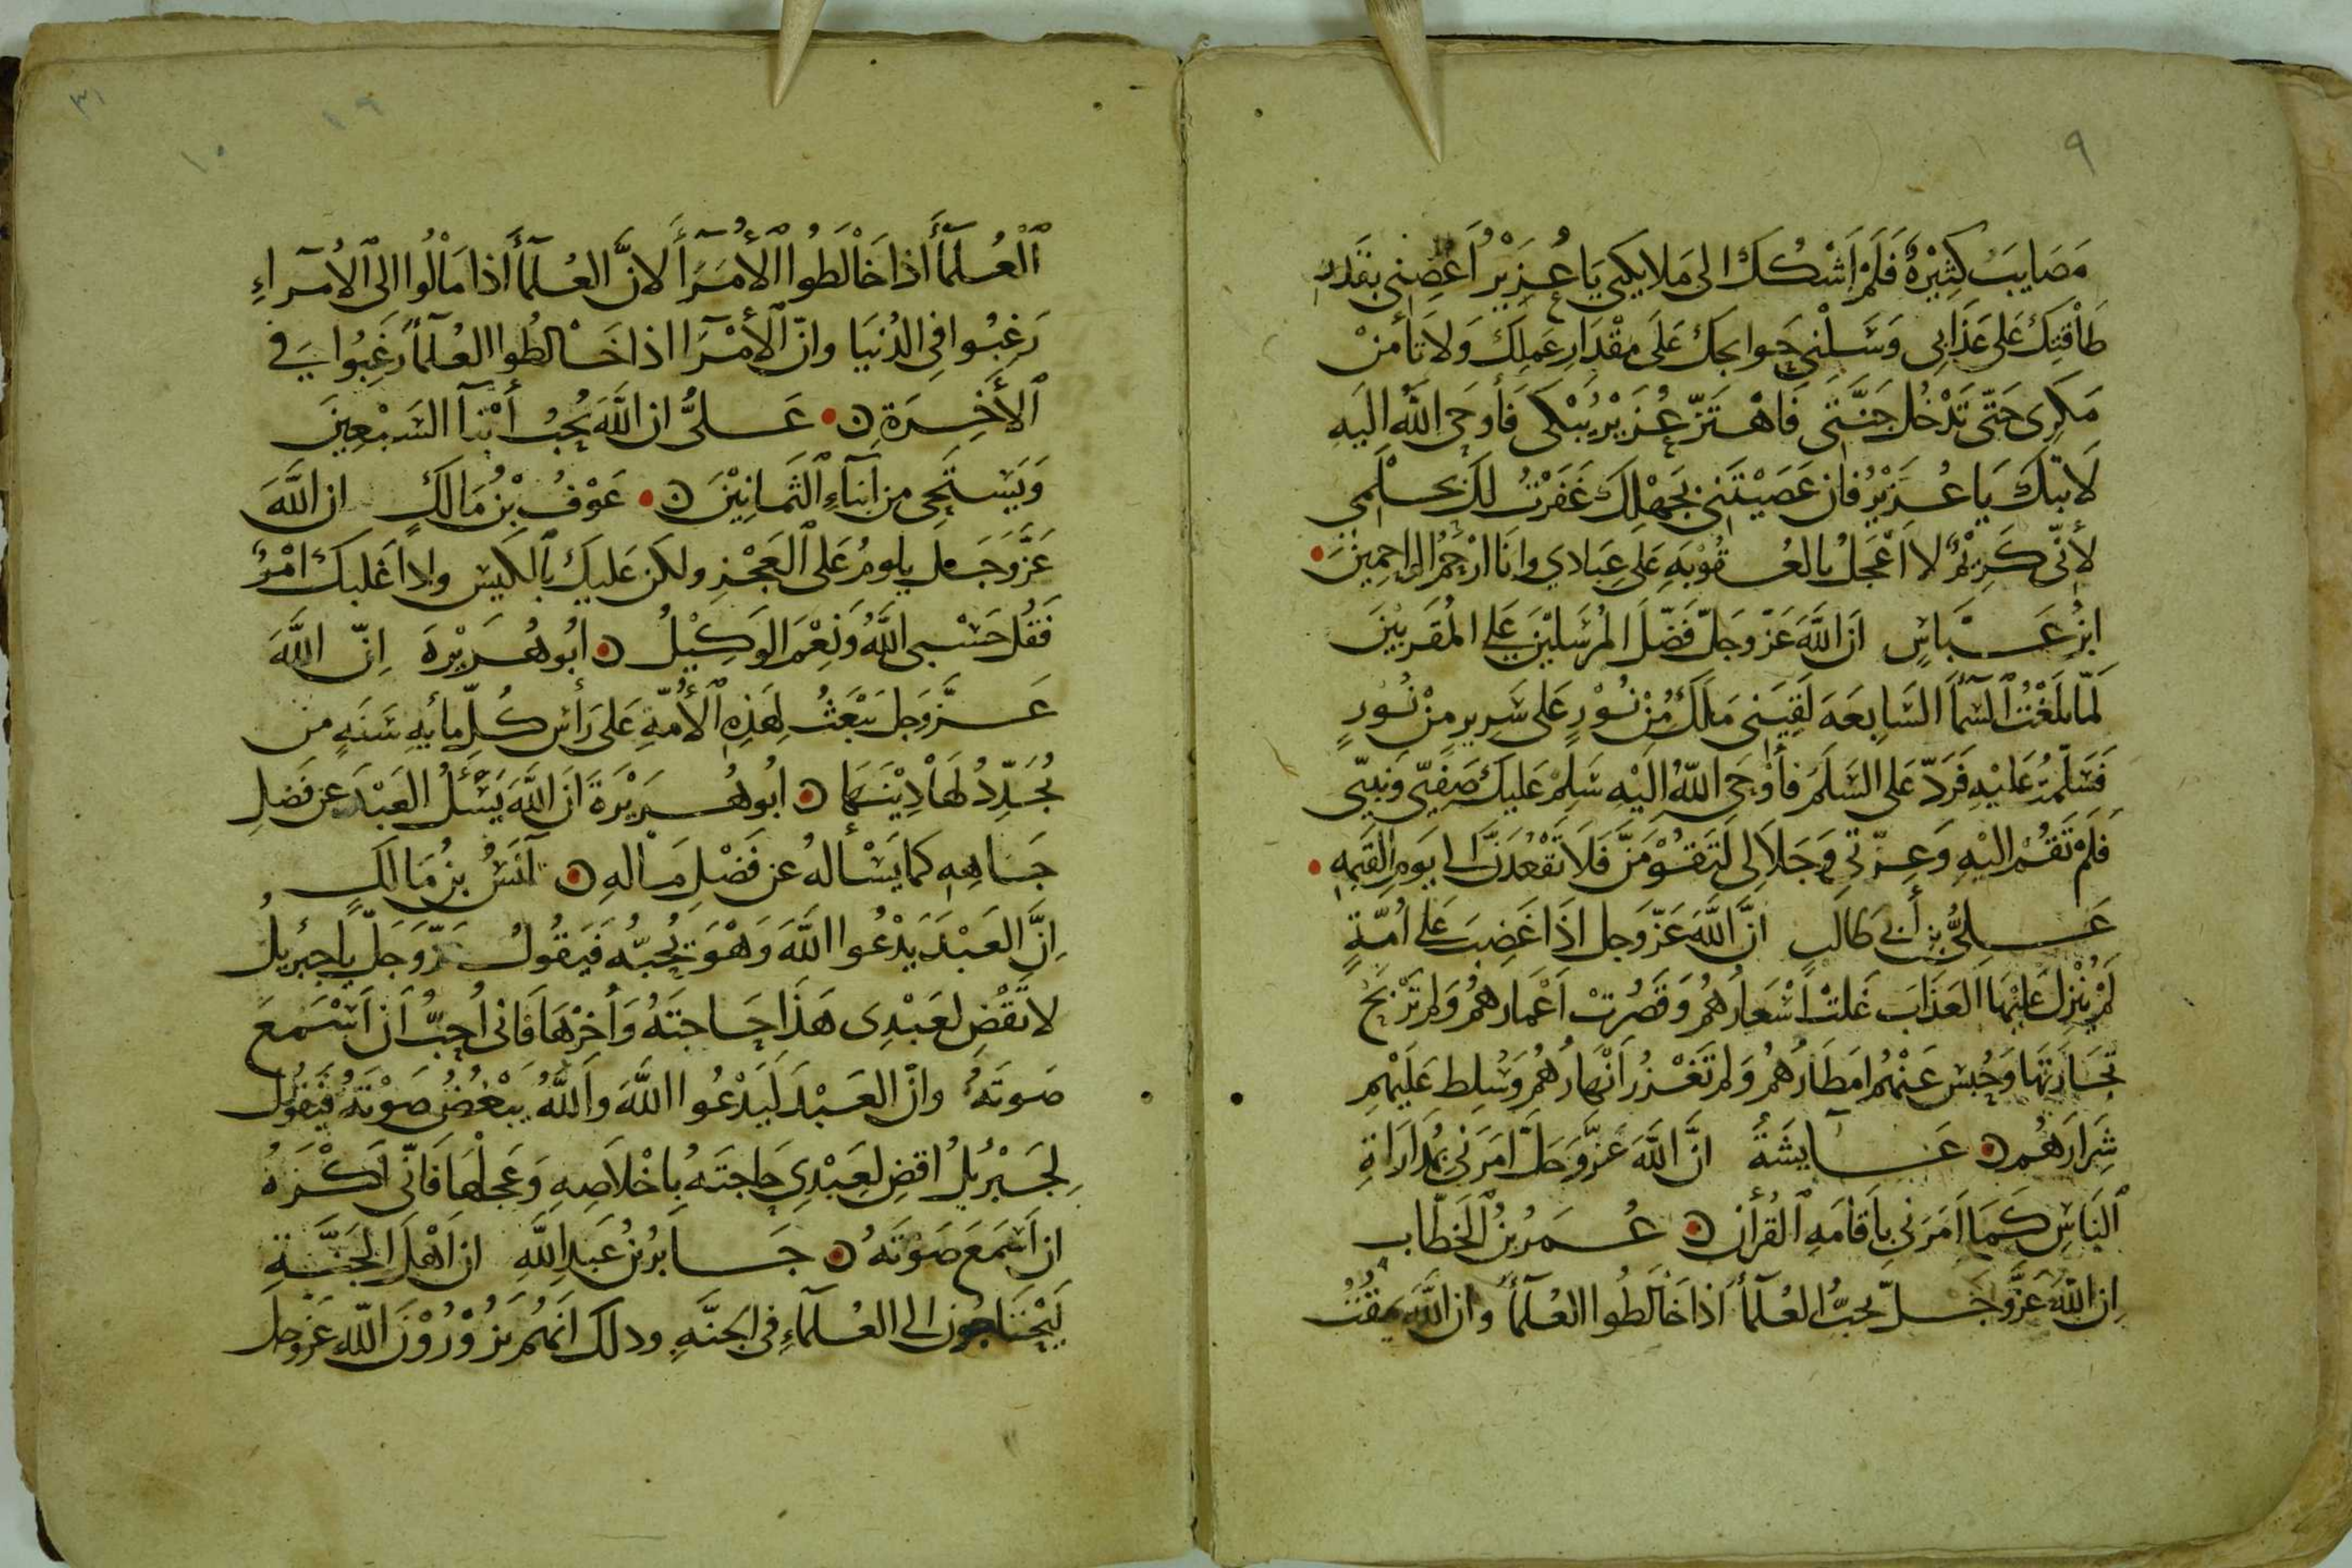 ٩
مَصَايِبَ كَثِيْرَةٌ فَلَمْ اَشْكُكَ الى مَلايكتي يَا عُزَيْرُ اَعْصِنِي بقَدَرِ
طَاْقَتِكَ عَلى عَذَابي وَسَلْنِي حَوايجَكَ عَلَى مِقْدَارِ عَمَلِكَ وَلَا تَأمَنْ
مَكرِى حَتّى تَدْخُلَ جَنَّتى فَاهْتَزّ عُزَيْرُ يَبْكى فَأوحَى اللَّهُ اليَهِ
لَا تبْكِ يَا عُزَيْرُ فَان عَصَيْتَنِي بجَهْلِكَ غَفَرْتُ لَكَ بحلمي
لأنّى كَرِيْمٌ لا اَعْجَلُ بالعُقُوْبَهِ عَلى عِبَادي وانَا ارْحَمُ الراحِمِيْنَ
ابنُ عَبَّاسٍ اَن اللَّهَ عَزّ وَجَلّ فَضّلَ المُرسَلِيْنَ عَلى المُقَرَبيْنَ
لَمّا بَلَغْتُ السّمآَ السَّابِعَهَ لَقِيَنِى مَلَكٌ مِنْ نُورٍ عَلى سَرِيرٍ مِنْ نُورٍ
فَسَلّمْتُ عَلَيْهِ فَرَدّ عَلى السَلَمَ فأوْحَى اللّهُ الَيْهِ سَلمْ عَليكَ صَفِيّى وَنبيّى
فَلَمْ تَقُمْ اليْهِ وَعِزّتي وَجَلَالى لَتَقُوْمَنَّ فَلَا تَقْعُدَنَّ الى يَومِ القِيَمهِ
عَلىُّ بن أبى طَالبٍ انَّ اللَّهَ عَزّ وَجل اذَا غَضِبَ عَلى اُمّةٍ
لَمْ يُنْزِلْ عَليْهَا العَذَابَ غَلَتْ اَسْعَارُهُمْ وَقَصُرتْ اَعْمَارهُمْ وَلم تَرْبَحْ
تجَارَتهَا وَحُبِسَ عَنْهُمْ امَطَارُهُمْ وَلم تَغْزُرْ اَنْهَارُهُمْ وَسُلِط عَلَيْهمِ
شِرَارَهُمْ عَآيشَةَ انَّ اللَّهَ عَزَّ وَجَلَّ امَرَنى بمُدَارَاةِ
النَاسِ كَمَا امَرَنى بِاَقَامَهِ القُرأن عُمَرُ بنُ الخَطّاب
اِن اللّهَ عَزَّ وَجَلّ يحبُّ العُلَمآَ اذا خَالَطُوا العُلَمآَ وان اللَّهَ يمقُتُ
٣١
١٩
١٠
اْلعُلَمآَ اذا خَالَطُوا الأمَرَآَ لانَّ العُلَمآَ اذا مَالُوا الى الاُمرآءِ
رَغِبُوا فِى الدُنيَا وانّ الأُمَرآَ اذا خَالَطُوا العُلَمآَ رَغِبُوا فى
الأَخِرَةِ عَلىُّ ان اللَّهَ يُحِبُ أَبْنآَ السَبْعِينَ
وَيَستَحِى من اَبنآءِ الثَمانِيْنَ عَوْفُ بْنُ مَالكٍ ان اللَّهَ
عَزَّ وَجَل يلومُ عَلى العَجْزِ ولكن عَليكَ بالكَيسِ واذا غلبكَ امْرٌ
فَقُل حَسْبى اللَّهُ وَنِعْمَ الوَكِيْلُ ابُو هُرَيْرَةَ اِنّ اللَّهَ
عَزَّ وَجَل يَبْعَثُ لِهَذِهِ الأُمّهِ عَلى رَأسِ كُلِّ مأيهِ سَنَهٍ من
يُجَدِّدُ لَهَا دِيْنَهَا ابُو هُرَيْرَةَ اَن اللَّهَ يَسْئَلُ العَبْدَ عن فَضلِ
جَاهِهِ كما يَسْألهُ عن فَضْلِ مَالهِ اَنَسُ بنُ مَالكٍ
اِنَّ العَبْدَ يَدْعُوا اللَّهَ وَهْوَ يُحِبُّه فَيَقُولُ عَزّ وَجَلّ يا جبْريلُ
لا تَقْضِ لعَبْدِى هَذَا حَاجتَهُ وَأخرْهَا فَانى اُحِبُّ اَن اَسْمَعَ
صَوتَهُ وانّ العَبْدَ لَيَدْعُوا اللَّهَ وَاللَّهُ يَبْغُضُ صَوْتَهُ فَيَقُولُ
لِجَبْرِيلُ اقضِ لعَبْدِي حَاجتَهُ بِاخْلَاصِهِ وَعَجلْهَا فَانّى اَكْرَهُ
ان اَسْمَعَ صَوتَهُ جَابرُ بنُ عَبدِ اللَّهِ ان اَهْلَ الجَنَّةِ
لَيَحْتَاجُون الى العُلَمآءِ فى الجَنَّهِ وذلكَ اَنهُمْ يَزُوْرُوْنَ اللّهِ عَزّ وجل